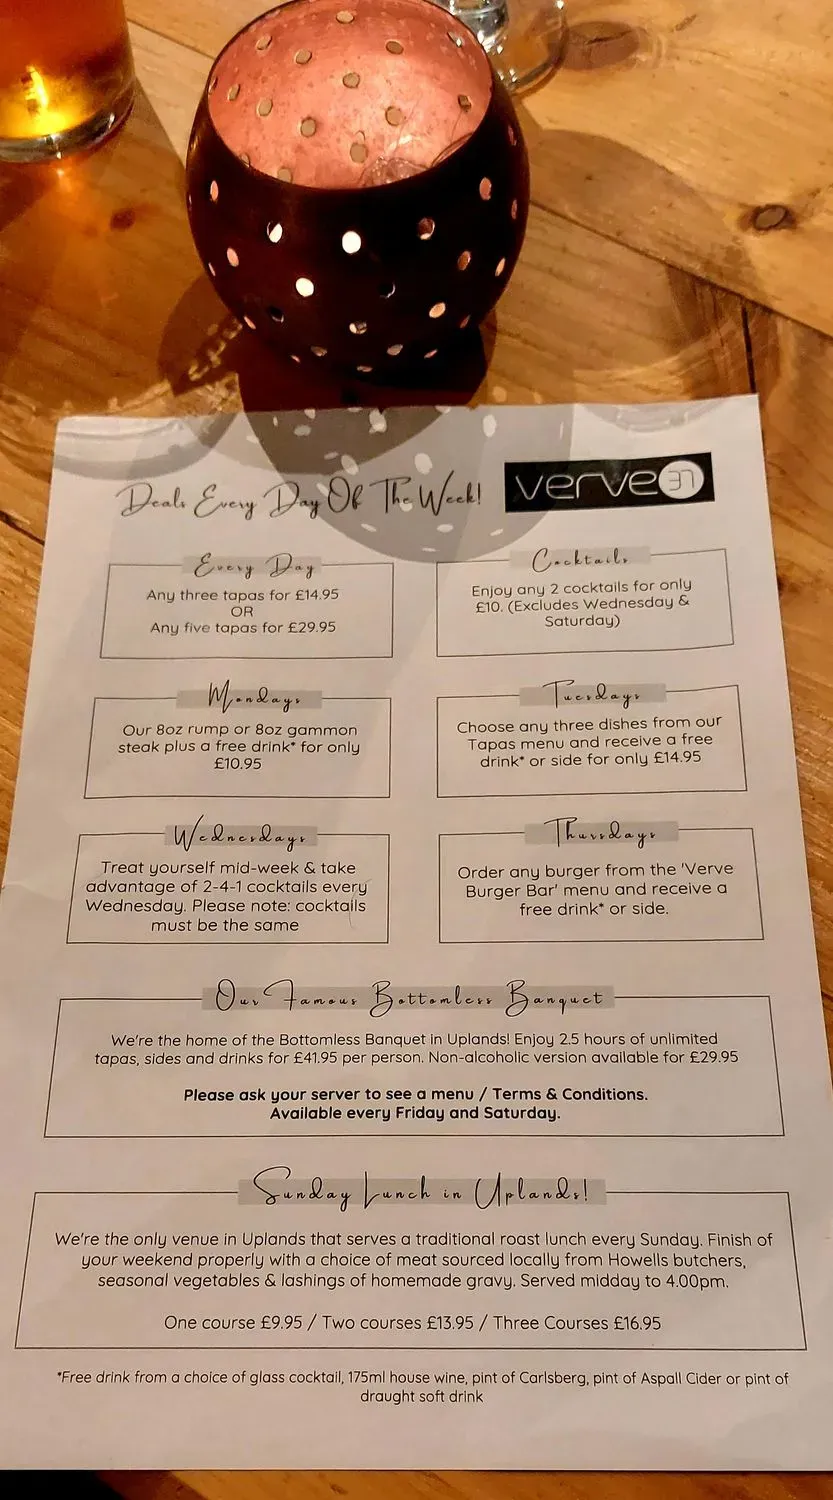 Deals Every Day Of The Week!
verve 37
Every Day
Any three tapas for £14.95
OR
Any five tapas for £29.95
Cocktails
Enjoy any 2 cocktails for only
£10. (Excludes Wednesday &
Saturday)
Mondays
Our 8oz rump or 8oz gammon
steak plus a free drink* for only
£10.95
Tuesdays
Choose any three dishes from our
Tapas menu and receive a free
drink* or side for only £14.95
Wednesdays
Treat yourself mid-week & take
advantage of 2-4-1 cocktails every
Wednesday. Please note: cocktails
must be the same
Thursdays
Order any burger from the 'Verve
Burger Bar' menu and receive a
free drink* or side.
Our Famous Bottomless Banquet
We're the home of the Bottomless Banquet in Uplands! Enjoy 2.5 hours of unlimited
tapas, sides and drinks for £41.95 per person. Non-alcoholic version available for £29.95
Please ask your server to see a menu / Terms & Conditions.
Available every Friday and Saturday.
Sunday Lunch in Uplands!
We're the only venue in Uplands that serves a traditional roast lunch every Sunday. Finish of
your weekend properly with a choice of meat sourced locally from Howells butchers,
seasonal vegetables & lashings of homemade gravy. Served midday to 4.00pm.
One course £9.95 / Two courses £13.95 / Three Courses £16.95
*Free drink from a choice of glass cocktail, 175ml house wine, pint of Carlsberg, pint of Aspall Cider or pint of
draught soft drink